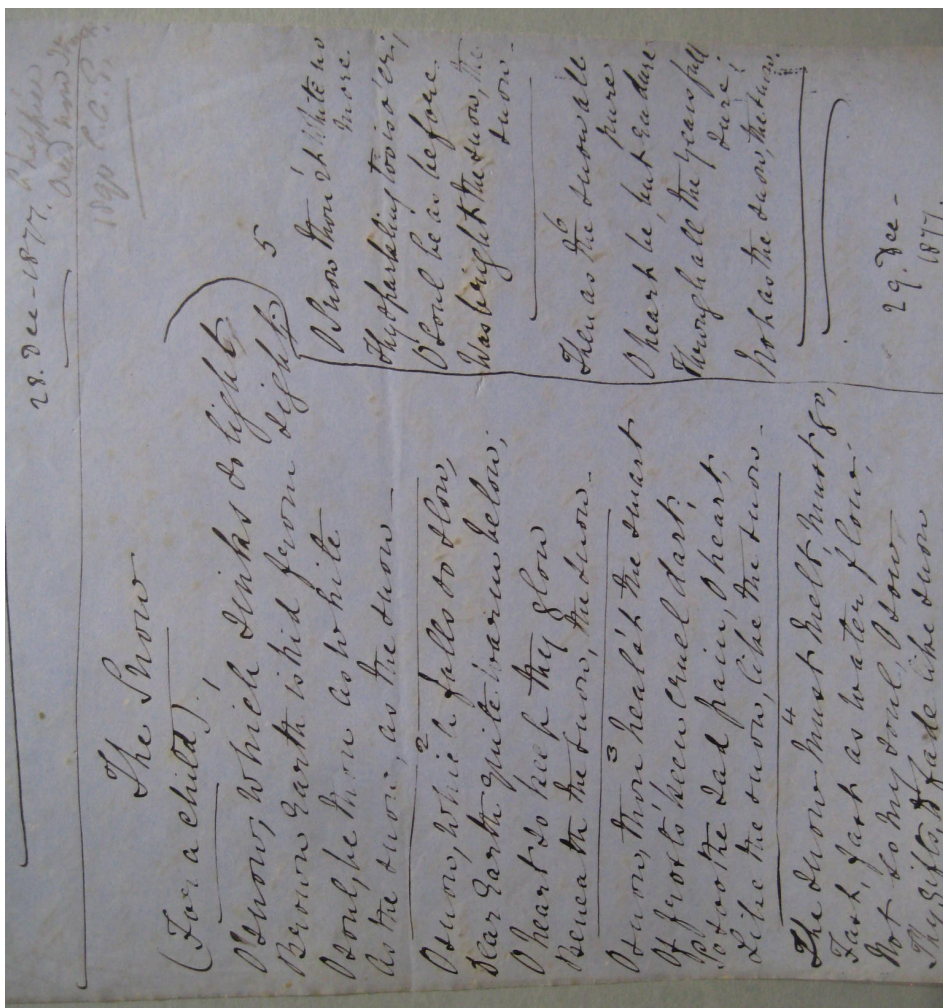 28. Dec - 1877.
1890 C.G.R.
The Snow
(For a child).
1
O snow, which sinks so light
Brown Earth is hid from sight
O soul, be thou as white
As the snow, as the snow -
2
O snow, which falls so slow,
Dear Earth quite warm below;
O heart so keep thy glow
Beneath the snow, the snow -
3
O snow, thou heal'st the smart
Of frost's keen cruel dart;
So soothe sad pain, O heart
Like the snow, like the snow -
4
The snow must melt, must go,
Fast, fast as water flow:
Not so my soul, O sow
Thy gifts to fade like snow
5
O snow thou'rt white no
more
Thy sparkling too is o'er;
O soul be as before
Was bright the snow, the
snow -
6
Then as the snow all
pure
O heart be, but endure
Through all the years full
sure;
Not as the snow, the snow.
29. Dec -
1877